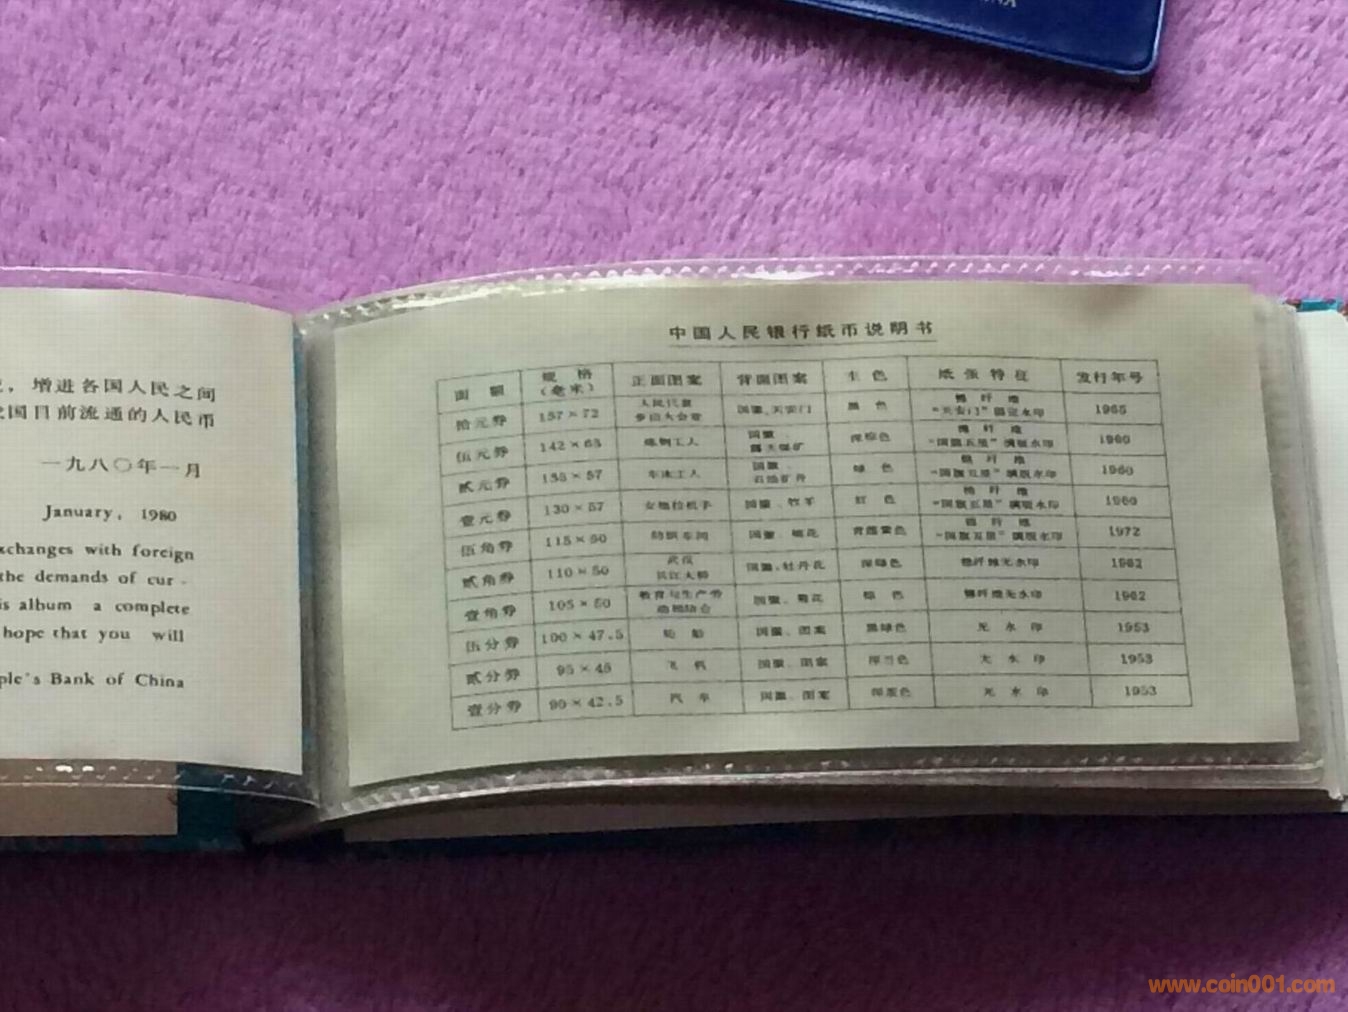 ，增进各国人民之间
国目前流通的人民币
一九八〇年一月
January, 1980
changes with foreign
the demands of cur -
is album a complete
hope that you will
ple's Bank of China
中国人民银行纸币说明书
面额 规格（毫米） 正面图案 背面图案 主色 纸张特征 发行年号
拾元券 157×72 人民代表步出大会堂 国徽、天安门 黑色 棉纤维“天安门”固定水印 1965
伍元券 142×63 炼钢工人 国徽、露天煤矿 深棕色 棉纤维“国旗五星”满版水印 1960
贰元券 车床工人 国徽、石油矿井 绿色 棉纤维“国旗五星”满版水印 1960
壹元券 130×57 女拖拉机手 国徽、牧羊 红色 棉纤维“国旗五星”满版水印 1960
伍角券 115×50 纺织车间 国徽、棉花 青莲黄色 棉纤维“国旗五星”满版水印 1972
贰角券 110×50 武汉长江大桥 国徽、牡丹花 深绿色 棉纤维无水印 1962
壹角券 105×50 教育与生产劳动相结合 国徽、菊花 棕色 棉纤维无水印 1962
伍分券 100×47.5 轮船 国徽、图案 黑绿色 无水印 1953
贰分券 95×45 飞机 国徽、图案 无水印 1953
壹分券 90×42.5 汽车 国徽、图案 无水印 1953
www.coin001.com